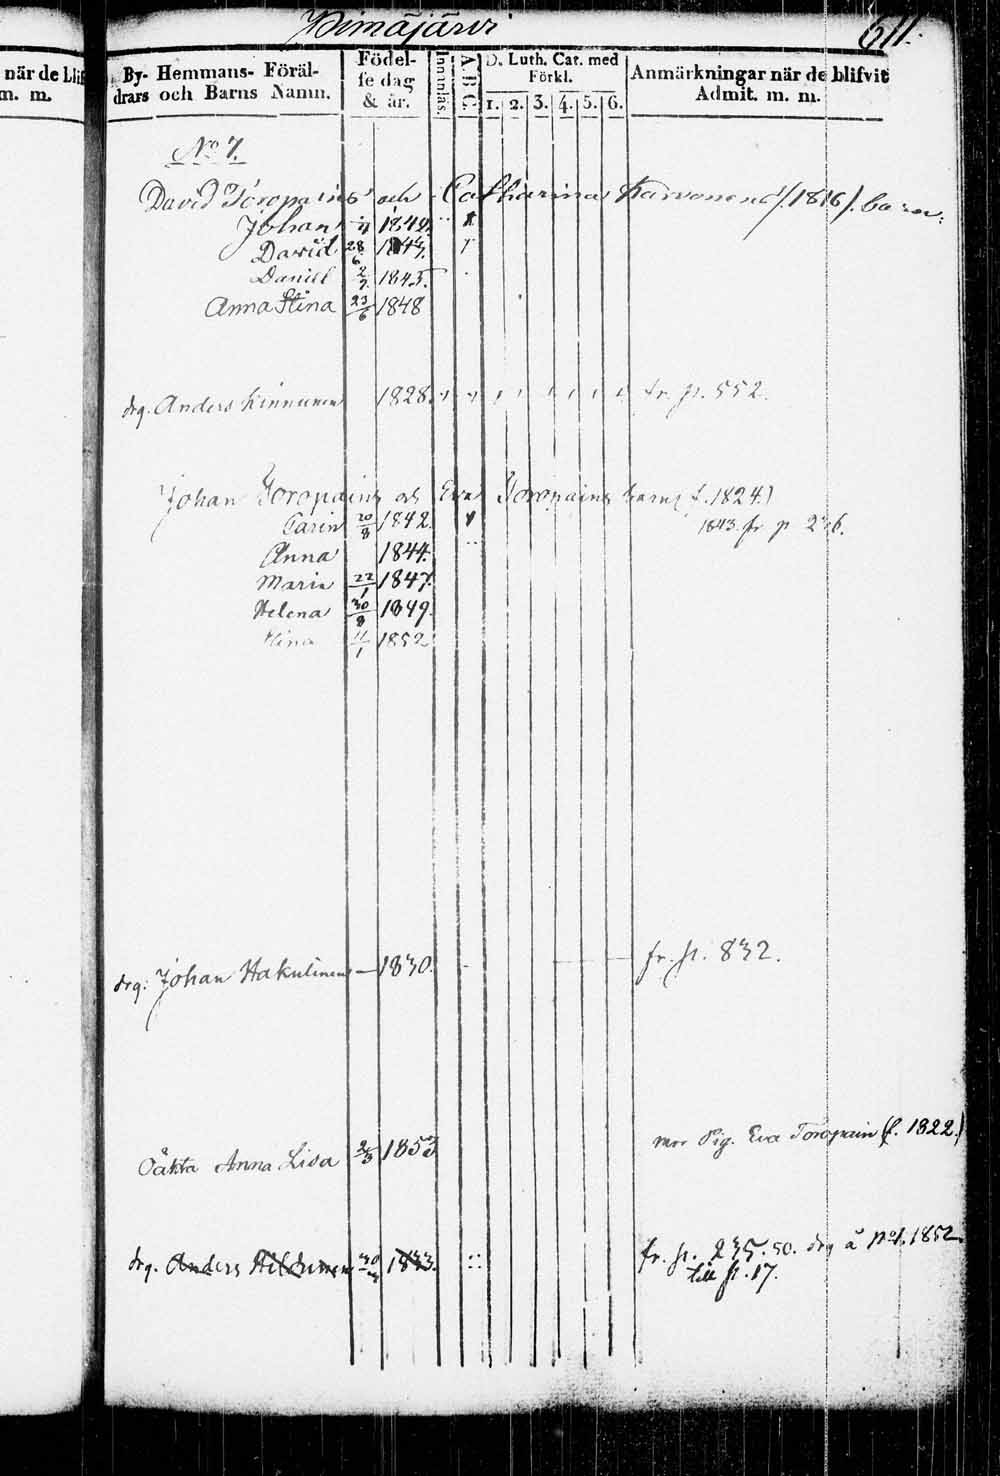 Pimäjärvi 611.
när de blif
m. m.
By- Hemmans- Föräl-
drars och Barns Namn.
Födel-
se dag
& år.
Innanläs.
A.B.C.
D. Luth. Cat. med
Förkl.
1. 2. 3. 4. 5. 6.
Anmärkningar när de blifvit
Admit. m. m.
No 7.
David Toropains och Catharina Karvonens (f. 1816). barn:
Johan 1842.
David 28/6 1843.
Daniel 2/7 1845.
Anna Stina 23/6 1848
drg. Anders Kinnunen 1828. fr. p. 552.
Johan Toropains och Eva Toropains barn (f. 1824.)
Carin 20/8 1842. 1843. fr p
Anna 1844.
Maria 22/1 1847.
Helena 30/8 1849.
Stina 11/1 1852
drg: Johan Hakulinen — 1830. fr. p. 832.
Oäkta Anna Lisa 2/3 1853 mor Pig. Eva Toropain (f. 1822.)
drg. Anders 1833. fr. p. 235. 50. drg å No 1. 1852.
till p. 17.